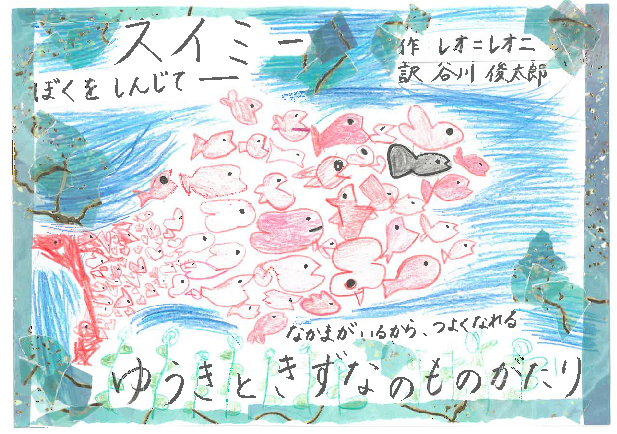 スイミー
作 レオ=レオニ
訳 谷川 俊太郎
ぼくを しんじて―
なかまがいるから、つよくなれる
ゆうきときずなのものがたり